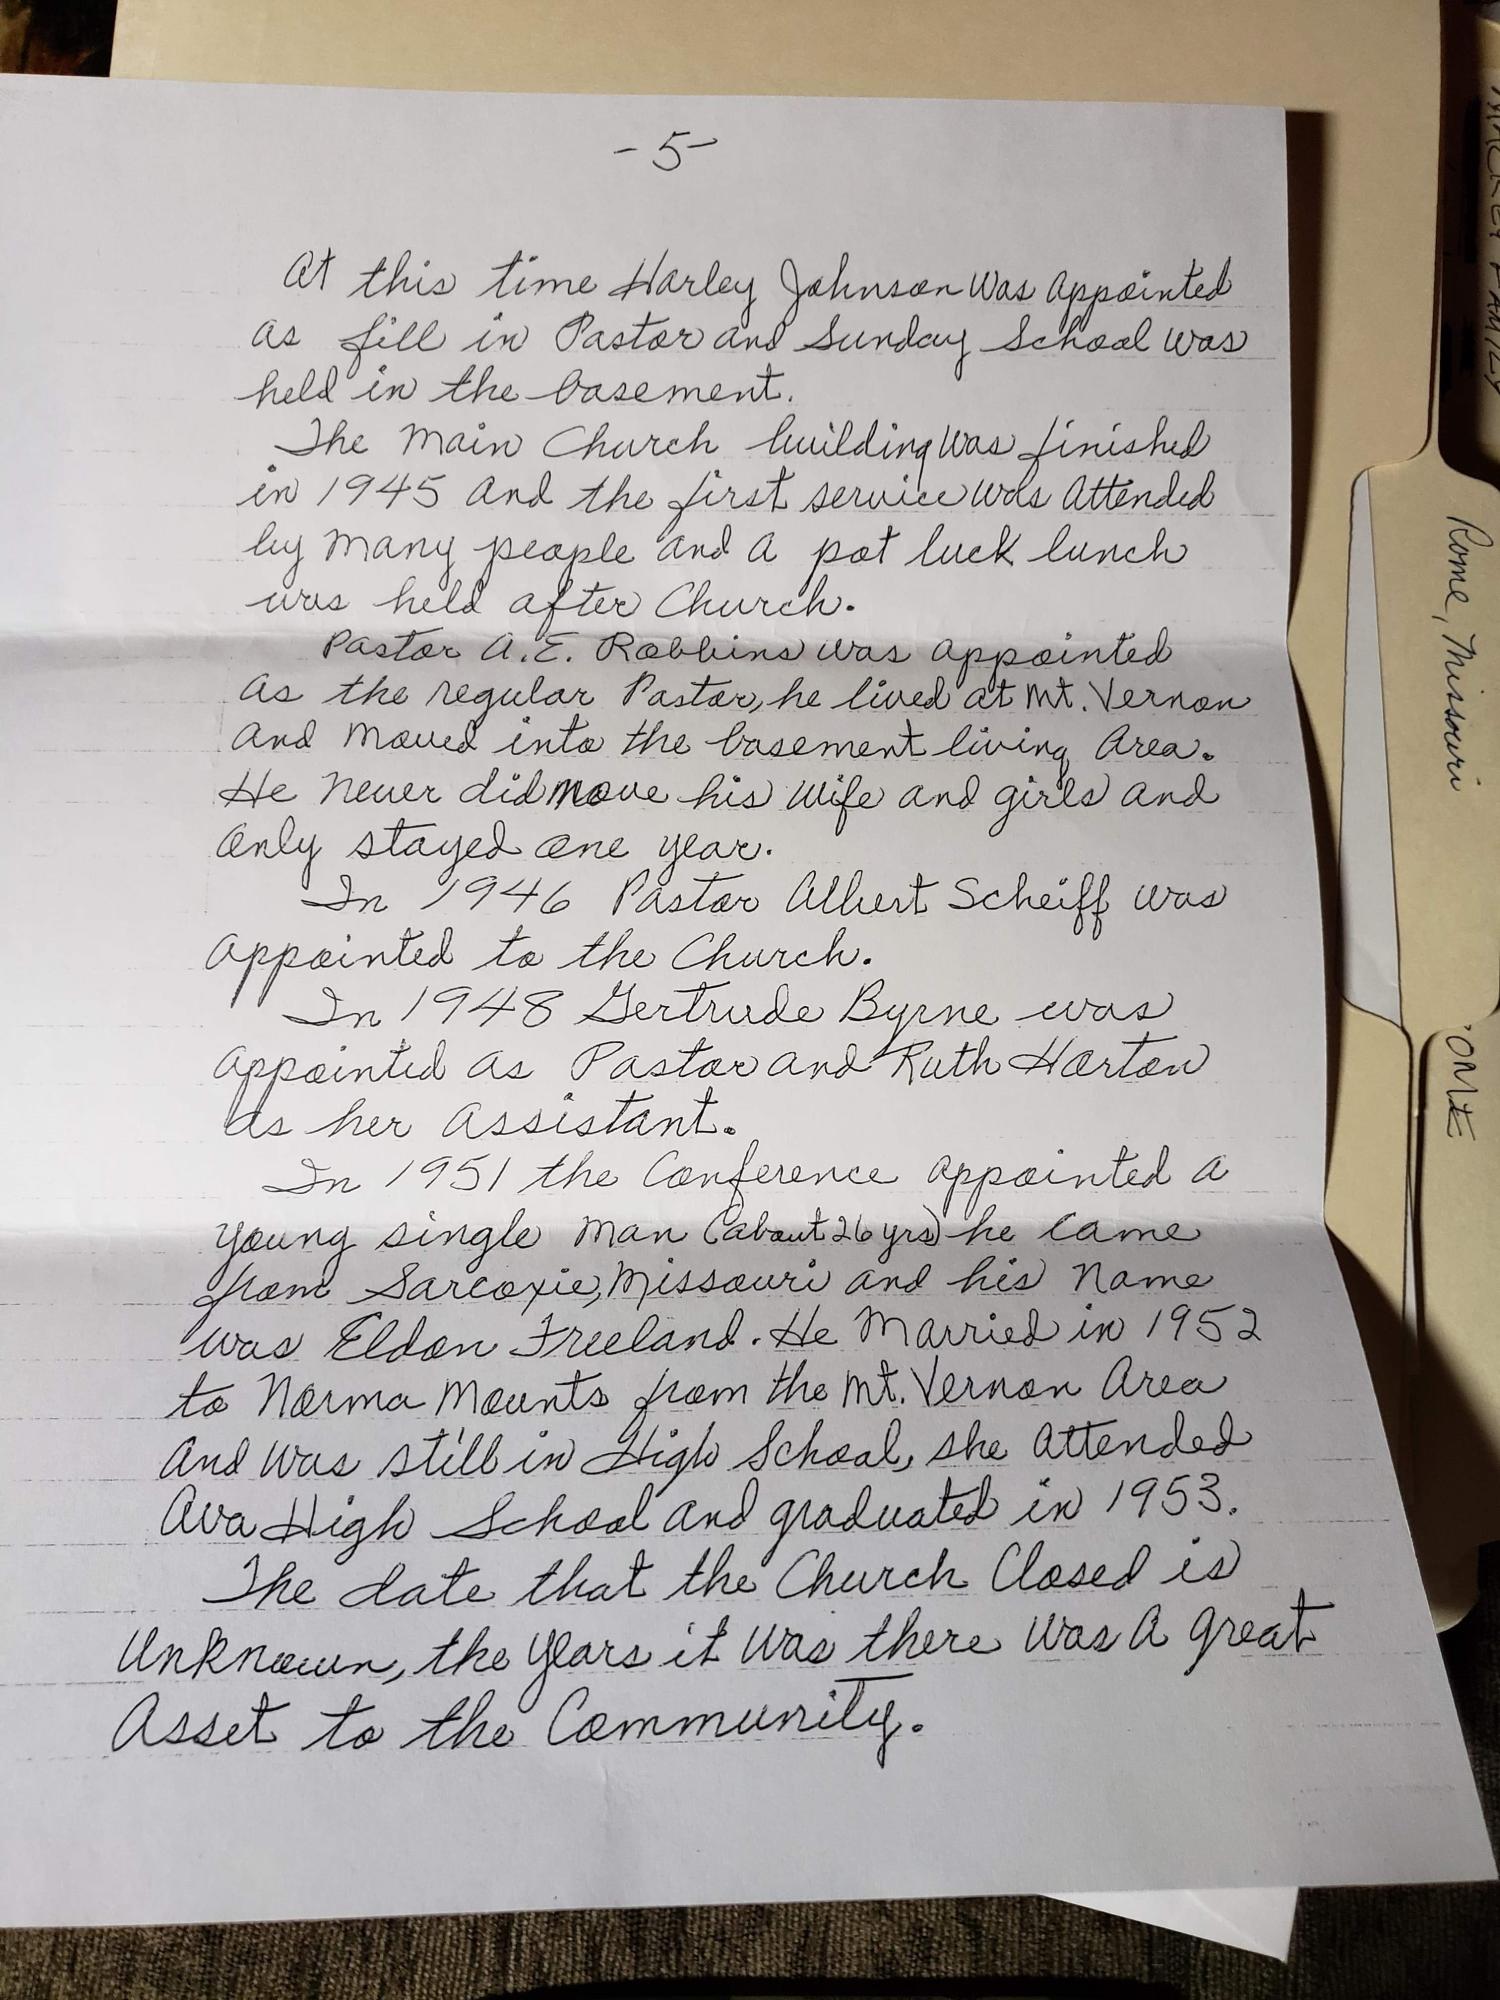 -5-
At this time Harley Johnson was appointed
as fill in Pastor and Sunday School was
held in the basement.
The Main Church building was finished
in 1945 and the first service was attended
by many people and a pot luck lunch
was held after Church.
Pastor A.E. Robbins was appointed
as the regular Pastor, he lived at Mt. Vernon
and moved into the basement living area.
He never did move his wife and girls and
only stayed one year.
In 1946 Pastor Albert Scheiff was
appointed to the Church.
In 1948 Gertrude Byrne was
appointed as Pastor and Ruth Horton
as her assistant.
In 1951 the Conference appointed a
young single man (about 26 yrs) he came
from Sarcoxie, Missouri and his name
was Eldon Freeland. He married in 1952
to Norma Mounts from the Mt. Vernon area
and was still in High School, she attended
Ava High School and graduated in 1953.
The date that the Church Closed is
unknown, the years it was there was a great
asset to the Community.
Rome, Missouri
FAMILY